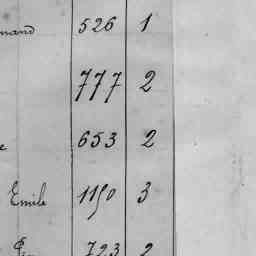 526 1
777 2
653 2
Emile 1190 3
723 2